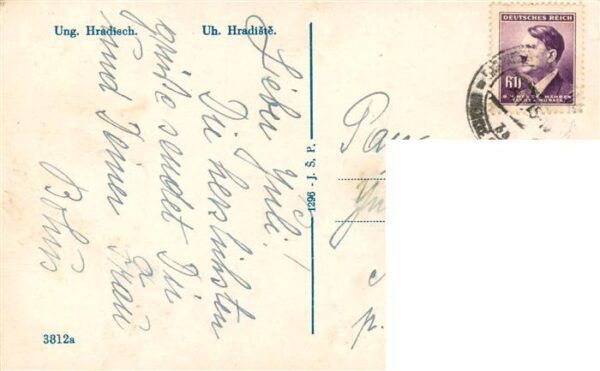 Ung. Hradisch. Uh. Hradiště.
Lieber Juli!
Die herzlichsten
grüße sendet Dir
und Deiner Frau
Bohuš
3812a
1296 - J. Š. P.
DEUTSCHES REICH
60
BÖHMEN U. MÄHREN
ČECHY A MORAVA